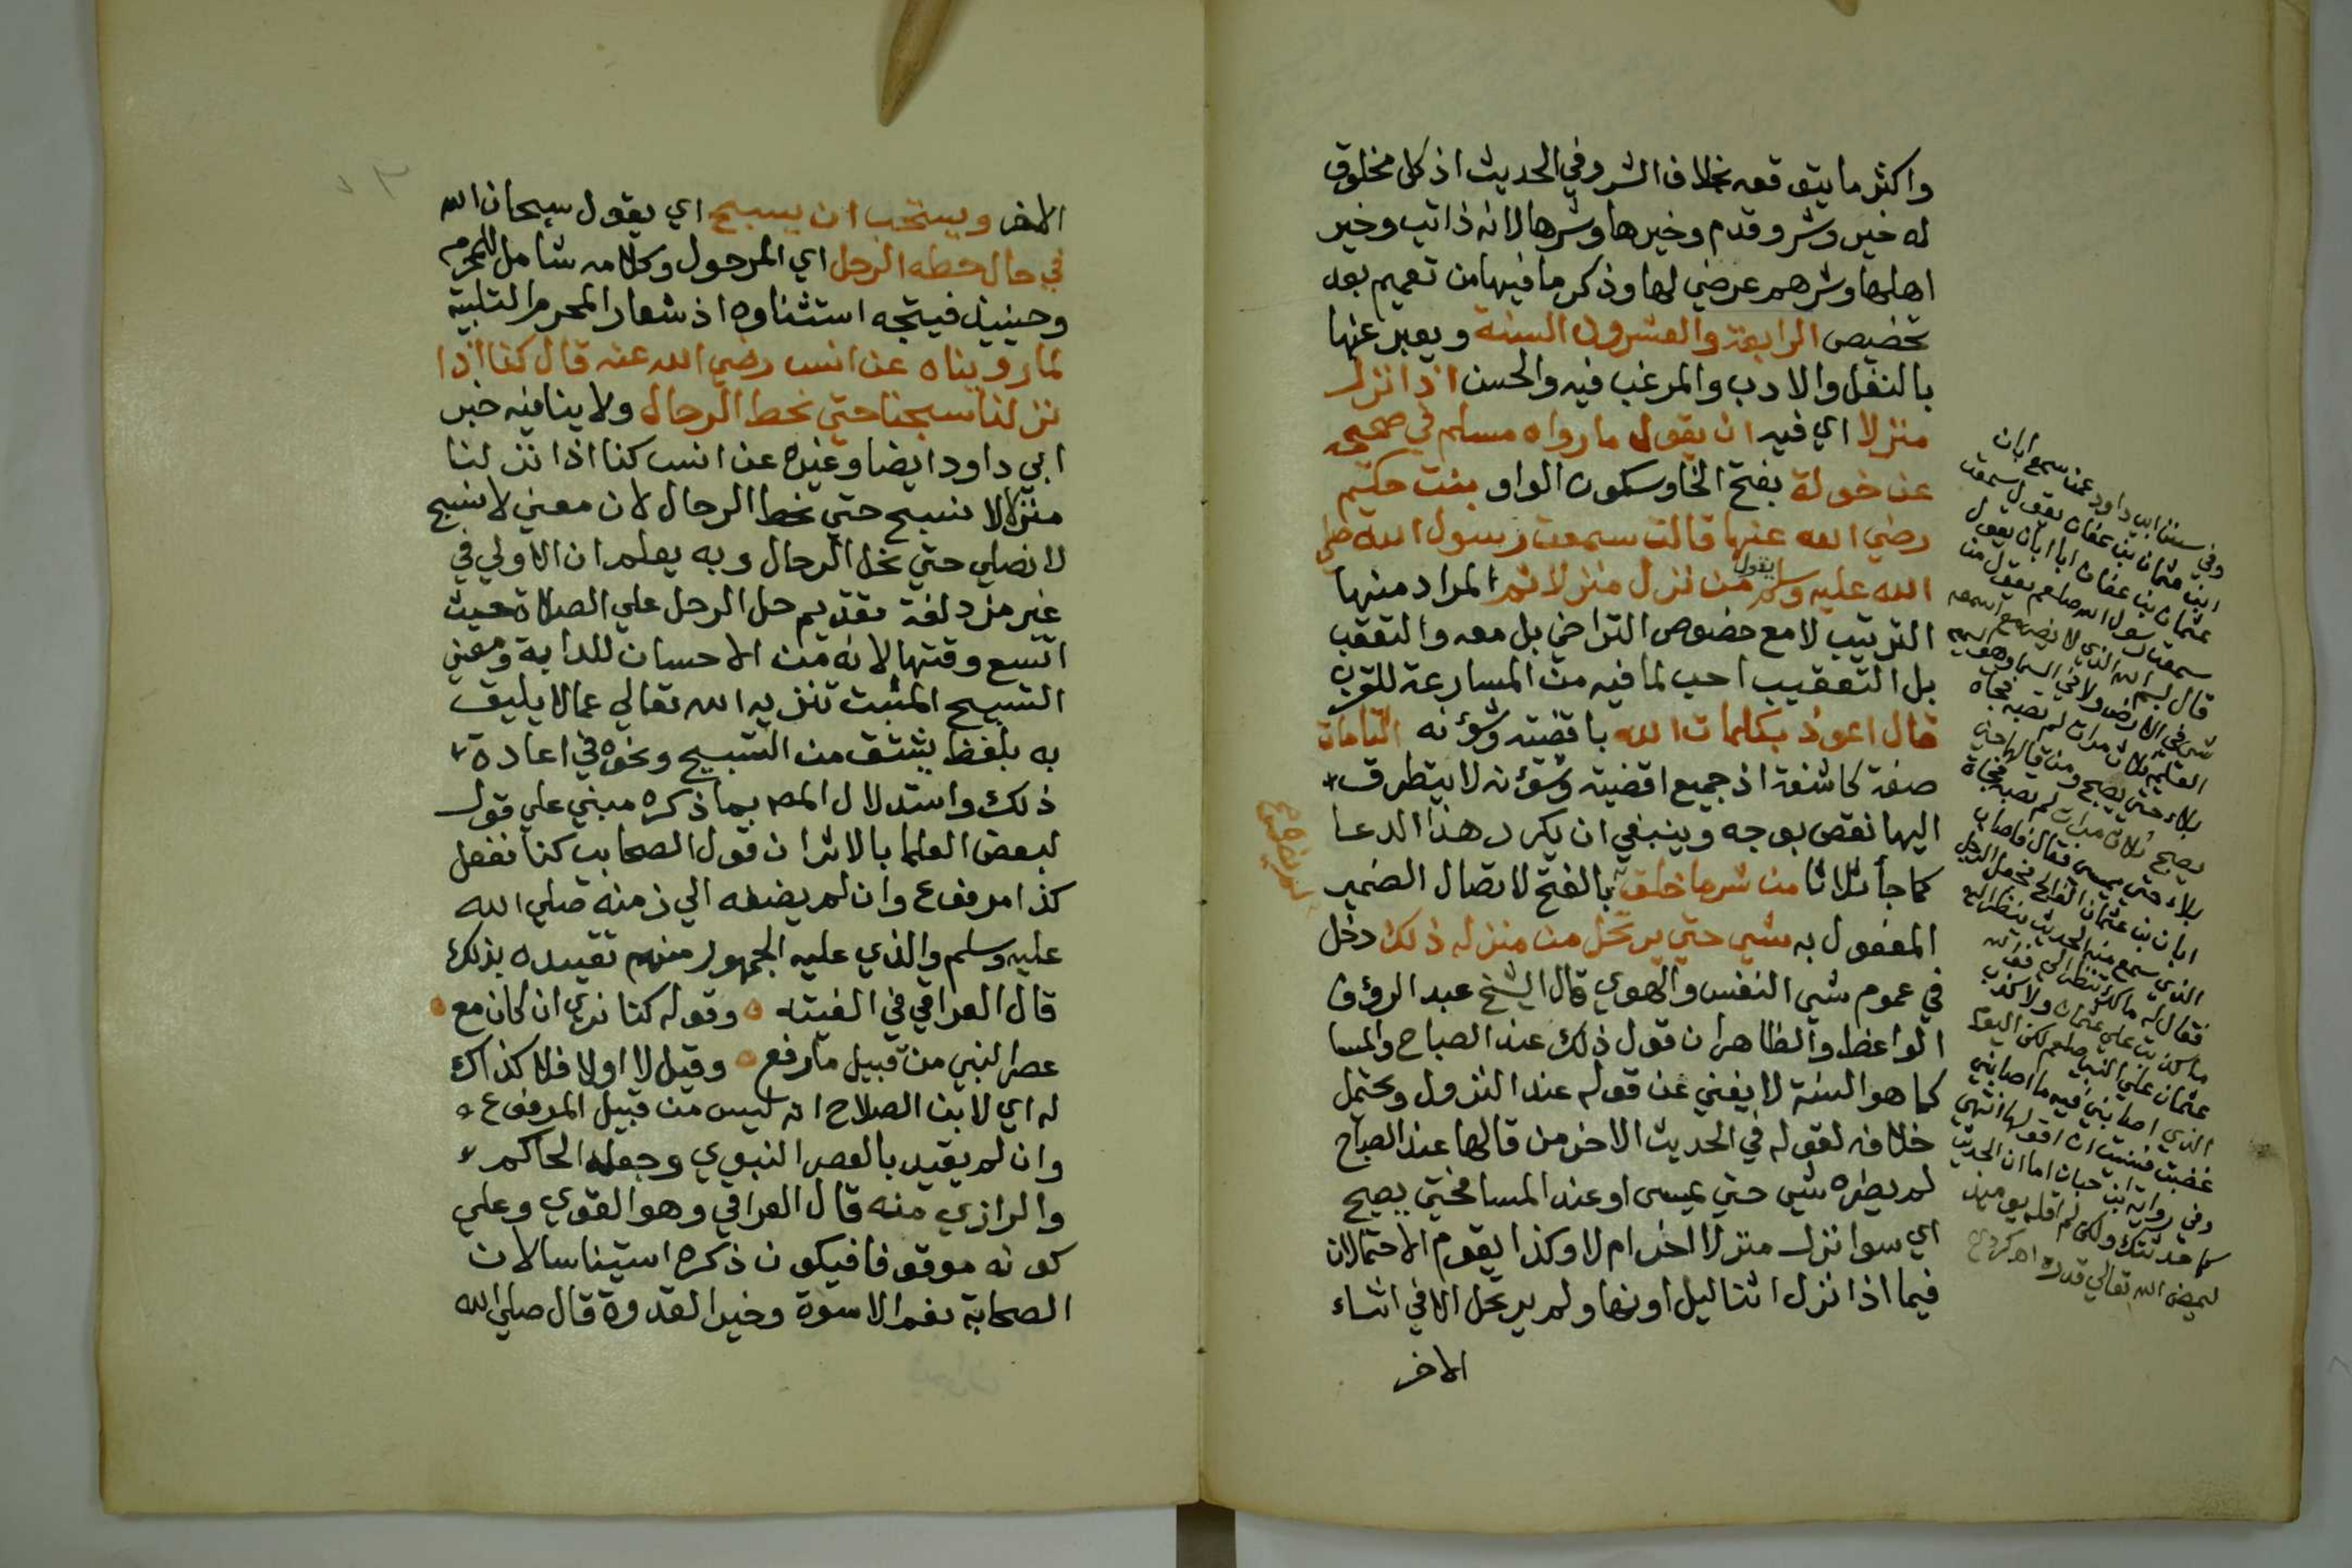 واكثر ما يتوقعه بخلاف الشر وفي الحديث اذ كل مخلوق
له خير وشر وقدم وخيرها وشرها لانه ذاتي وخير
اهلها وشرهم عرضي لها وذكر ما فيها من تعميم بعد
تخصيص الرابعة والعشرون السنة ويعبر عنها
بالنفل والادب والمرغب فيه والحسن اذا نزل
منزلا اي فيه ان يقول ما رواه مسلم في صحيحه
عن خولة بفتح الخا وسكون الواو بنت حكيم
رضي الله عنها قالت سمعت رسول الله صلي
الله عليه وسلم يقول من نزل منزلا ثم المراد منها
الترتيب لا مع خصوص التراخي بل معه والتعقب
بل التعقيب احب لما فيه من المسارعة للقرب
قال اعوذ بكلمات الله باقضيته وشؤنه التامات
صفة كاشفة اذ جميع اقضيته وشؤنه لا يتطرق
اليها نقص بوجه وينبغي ان يكرر هذا الدعا
كما جأ ثلاثا من شر ما خلق بالفتح لاتصال الضمير
لم يضره
المفعول به شيي حتي يرتحل من منزله ذلك دخل
في عموم شيي النفس والهوي قال الشيخ عبد الرؤف
الواعظ والظاهر ان قول ذلك عند الصباح والمسا
كما هو السنة لا يغني عن قوله عند النزول ويحتمل
خلافه لقوله في الحديث الاخر من قالها عند الصباح
لم يضره شيي حتي يمسى او عند المسا فحتي يصبح
اي سوا نزل منزلا اخر ام لا وكذا يقوم الاحتمالان
فيما اذا نزل اثنا ليل او نهار ولم يرتحل الا في اثناء
الاخر
وفي سنن ابي داود عمن سمع ابان
ابن عثمان بن عفان يقول سمعت
عثمان بن عفان ابا ابان يقول
سمعت رسول الله صلعم يقول من
قال بسم الله الذي لا يضر مع اسمه
شي في الارض ولا في السما وهو السميع
العليم ثلاث مرات لم تصبه فجاة
بلاء حتي يصبح ومن قالها حين
يصبح ثلاث مرات لم تصبه فجاة
بلاء حتي يمسي فقال فاصاب
ابان بن عثمان الفالج فجعل الرجل
الذي سمع منه الحديث ينظر اليه
فقال له مالك تنظر الي فوالله
ما كذبت علي عثمان ولا كذب
عثمان علي النبي صلعم لكن اليوم
الذي اصابني فيه ما اصابني
غضبت فنسيت ان اقولها انتهي
وفي رواية ابن حبان اما ان الحديث
كما حدثتك ولكن لم اقله يومئذ
ليمضي الله تعالي قدره اهـ
الاخر ويستحب ان يسبح اي يقول سبحان الله
في حال حطه الرحل اي المرحول وكلامه شامل للمحرم
وحينيذ فيتجه استثناوه اذ شعار المحرم التلبية
لما رويناه عن انس رضي الله عنه قال كنا اذا
نزلنا سبحنا حتي نحط الرحال ولا ينافيه خبر
ابي داود ايضا وغيره عن انس كنا اذا نزلنا
منزلا لا نسبح حتي نحط الرحال لان معني لا نسبح
لا نصلي حتي نحل الرحال وبه يعلم ان الاولي في
غير مزدلفة تقديم حل الرحل علي الصلاة حيث
اتسع وقتها لانه من الاحسان للدابة ومعني
التسبيح المثبت تنزيه الله تعالي عما لا يليق
به بلفظ يشتق من التسبيح ونحوه في اعادة
ذلك واستدلال المص بما ذكره مبني علي قول
لبعض العلما بالاثر ان قول الصحابي كنا نفعل
كذا مرفوع وان لم يضفه الي زمنه صلي الله
عليه وسلم والذي عليه الجمهور منهم تقييده بذلك
قال العراقي في الفيته وقوله كنا نري ان كان مع
عصر النبي من قبيل ما رفع وقيل لا اولا فلا كذاك
له اي لابن الصلاح انه ليس من قبيل المرفوع
وان لم يقيد بالعصر النبوي وجعله الحاكم
والرازي منه قال العراقي وهو القوي وعلي
كونه موقوفا فيكون ذكره استيناسا لان
الصحابة نعم الاسوة وخير القدوة قال صلي الله